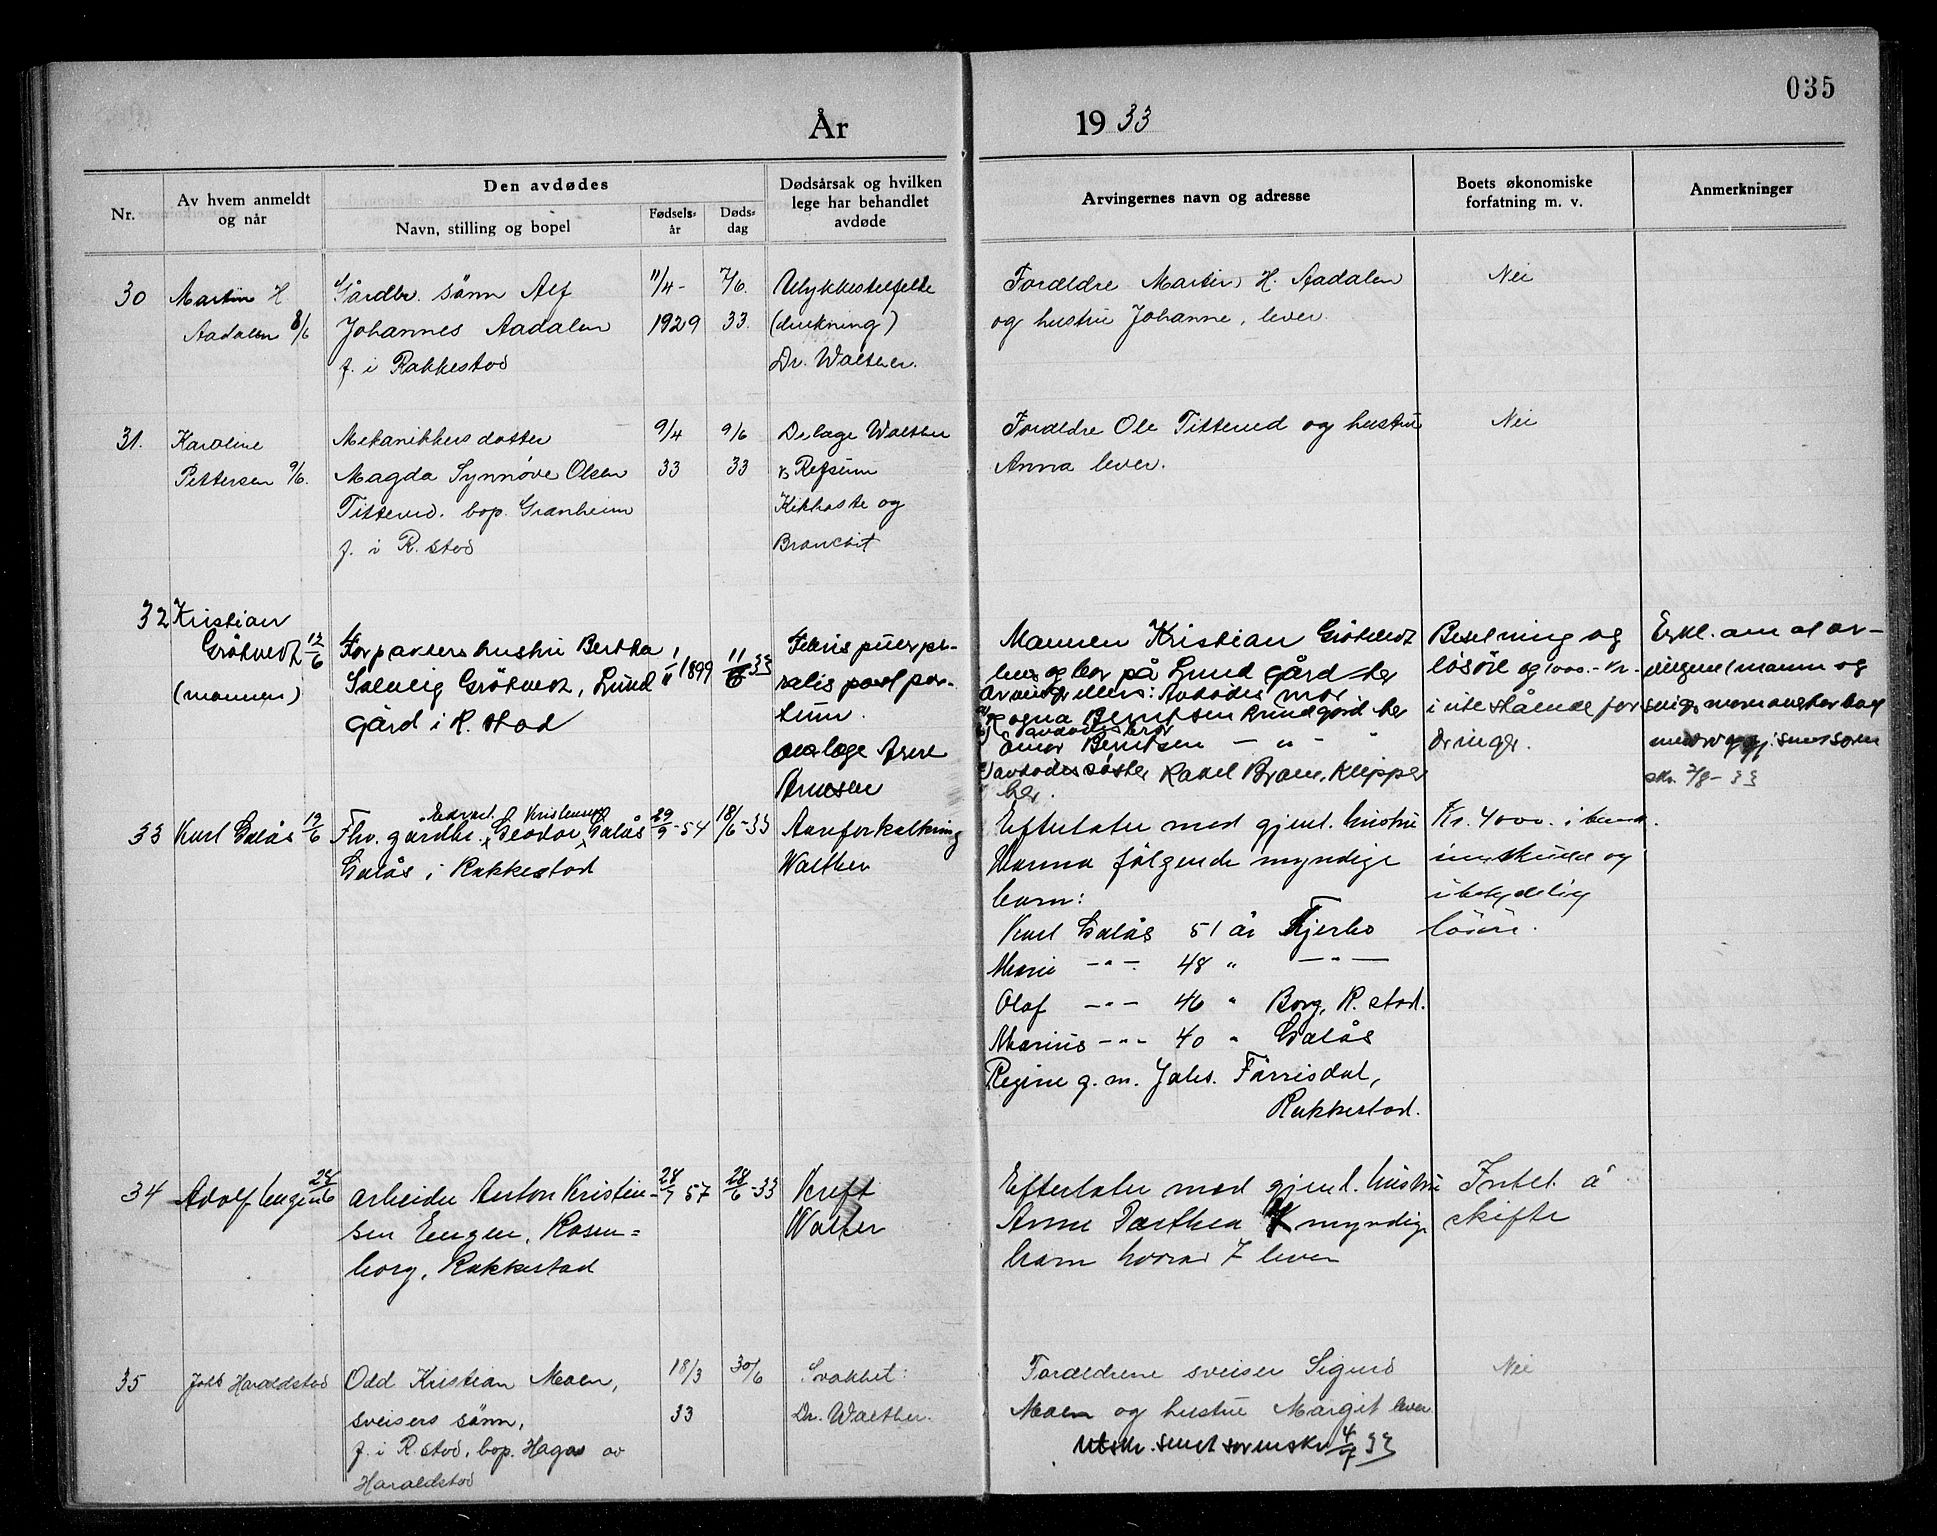 035
År
1933
Nr.
Av hvem anmeldt
og når
Den avdødes
Navn, stilling og bopel
Fødsels-
år
Døds-
dag
Dødsårsak og hvilken
lege har behandlet
avdøde
Arvingernes navn og adresse
Boets økonomiske
forfatning m. v.
Anmerkninger
30
Martin H
Aadalen 8/6
Gårdbr. sönn Alf
Johannes Aadalen
f. i Rakkestad
11/4-
1929
7/6.
33.
Ulykkestilfelle
(drukning)
Dr. Walther.
Foreldre Martin H. Aadalen
og hustru Johanne, lever.
Nei
31.
Karoline
Pettersen 9/6.
Mekanikkers datter
Magda Synnøve Olsen
Titterud. bop. Granheim
f. i R.stad
9/4
33
9/6
33
D.lege Walther
Refsum
Kikhoste og
Bronchit
Foreldre Ole Titterud og hustru
Anna lever.
Nei
32
Kristian
Grötvedt 12/6
(mannen)
Forpakters hustru Bertha
Solveig Grötvedt, Lund
gård i R.stad
1/11 1899
11/6 33
Febris puerpe-
ralis post par-
tum.
Arne
Arnesen
Mannen Kristian Grötvedt
lever og bor på Lund gård her
Arvinger ellers: Avdødes mor
Berntsen Lundgård her
avdødes bror
Einar Berntsen - " - "
avdødes søster Rakel Braen, Klepper
her.
Besetning og
lösöre og 1000.- kr.
i utestående for-
dringer.
Erkl. om at ar-
vingene (mannen og
skr. 7/8-33
33
Karl Galås 19/6
Edvart Kristensen
Fhv. gårdbr. Galås
Galås i Rakkestad
29/9-54
18/6-33
Aareforkalkning
Walther
Efterlater med gjenl. hustru
følgende myndige
barn:
Karl Galås 51 år Kjerbo
Marie -"- 48 " -"-
Olaf -"- 46 " Borg, R.stad.
Marius -"- 40 " Galås
Regine g. m. Johs. Förrisdal,
Rakkestad.
Kr. 4000. i bank-
innskudd og
ubetydelig
lösöre.
34
Adolf Engen 29/6
Arbeider Anton Kristian-
sen Engen, Rosen=
borg, Rakkestad
28/7 57
28/6-33
Kreft
Walther
Efterlater med gjenl. hustru
Anne Dorthea myndige
barn hvorav 7 lever
Intet å
skifte
35
Joh Haraldstad
Odd Kristian Moen,
sveisers sönn,
f. i R.stad, bop. Haga av
Haraldstad
18/3
33
30/6
Svakhet:
Dr. Walther.
Foreldrene sveiser Sigurd
Moen og hustru Margit lever.
Utskr. sendt sorenskr 4/7 33
Nei